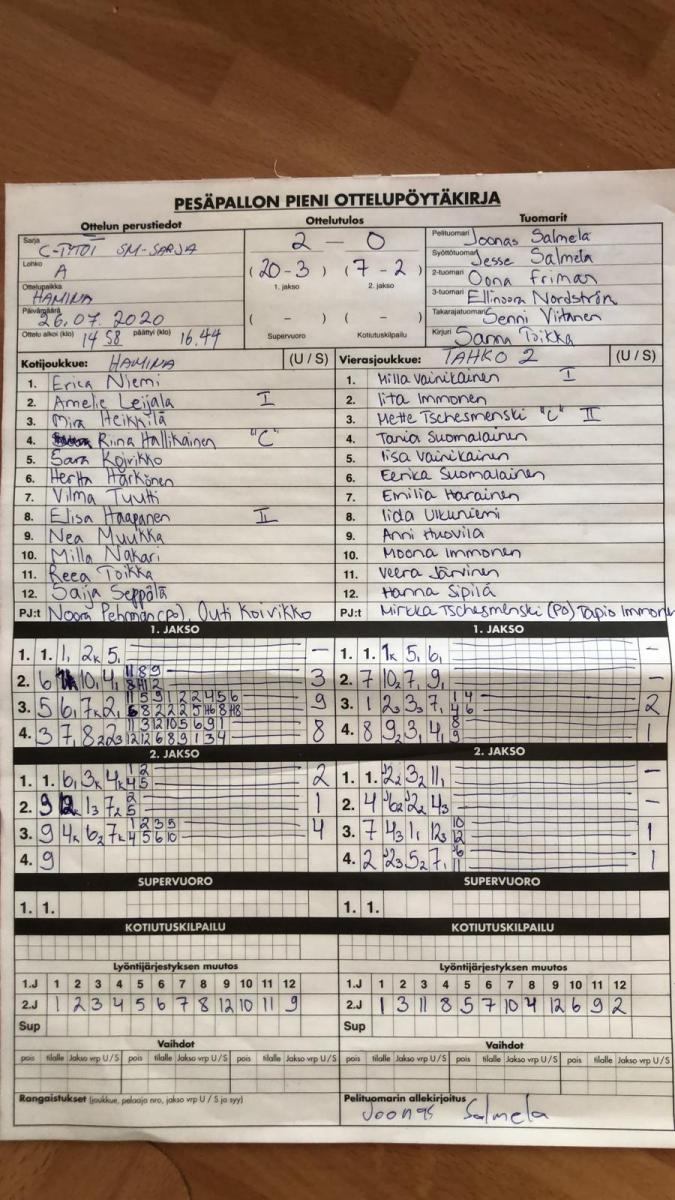 PESÄPALLON PIENI OTTELUPÖYTÄKIRJA
Ottelun perustiedot Ottelutulos Tuomarit
Sarja C-TYTÖT SM-SARJA 2 - 0 Pelituomari Joonas Salmela
Lohko A (20-3) (7-2) Syöttötuomari Jesse Salmela
1. jakso 2. jakso 2-tuomari Oona Friman
Ottelupaikka HAMINA 3-tuomari Ellinoora Nordström
Päivämäärä 26.07.2020 ( - ) ( - ) Takarajatuomari Senni Viitanen
Ottelu alkoi (klo) 14 58 päättyi (klo) 16.44 Supervuoro Kotiutuskilpailu Kirjuri Sanna Toikka
Kotijoukkue: HAMINA (U / S) Vierasjoukkue: TAHKO 2 (U / S)
1. Erica Niemi 1. Milla Vainikainen I
2. Amelie Leijala I 2. Iita Immonen
3. Mira Heikkilä 3. Mette Tschesmenski "C" II
4. Riina Hallikainen "C" 4. Tania Suomalainen
5. Sara Koivikko 5. Iisa Vainikainen
6. Hertta Härkönen 6. Eerika Suomalainen
7. Vilma Tyutti 7. Emilia Harainen
8. Elisa Haapanen II 8. Iida Ulkuniemi
9. Nea Muukka 9. Anni Huovila
10. Milla Nakari 10. Moona Immonen
11. Reea Toikka 11. Veera Järvinen
12. Saija Seppölä 12. Hanna Sipilä
PJ:t Noora Pehrman (po), Outi Koivikko PJ:t Mirkka Tschesmenski (PO) Tapio Immonen
1. JAKSO 1. JAKSO
1. 1. 1, 2k 5, – 1. 1. 1k 5, 6, –
2. 6 10, 4, 3 2. 7 10, 7, 9, –
3. 5 6, 7k 2, 9 3. 1 2, 3, 7, 2
4. 3 7, 8 8 4. 8 9, 3, 4, 1
2. JAKSO 2. JAKSO
1. 1. 6, 3k 4k 2 1. 1. 3, 11, –
2. 9 1 2. 4 –
3. 9 4k 6, 7k 4 3. 7 4, 1, 12, 1
4. 9 4. 2 5, 7, 1
SUPERVUORO SUPERVUORO
1. 1. 1. 1.
KOTIUTUSKILPAILU KOTIUTUSKILPAILU
Lyöntijärjestyksen muutos Lyöntijärjestyksen muutos
1.J 1 2 3 4 5 6 7 8 9 10 11 12 1.J 1 2 3 4 5 6 7 8 9 10 11 12
2.J 1 2 3 4 5 6 7 8 12 10 11 9 2.J 1 3 11 8 5 7 10 4 12 6 9 2
Sup Sup
Vaihdot Vaihdot
pois tilalle Jakso vrp U / S pois tilalle Jakso vrp U / S pois tilalle Jakso vrp U / S pois tilalle Jakso vrp U / S pois tilalle Jakso vrp U / S pois tilalle Jakso vrp U / S
Rangaistukset (joukkue, pelaaja nro, jakso vrp U / S ja syy) Pelituomarin allekirjoitus
Joonas Salmela